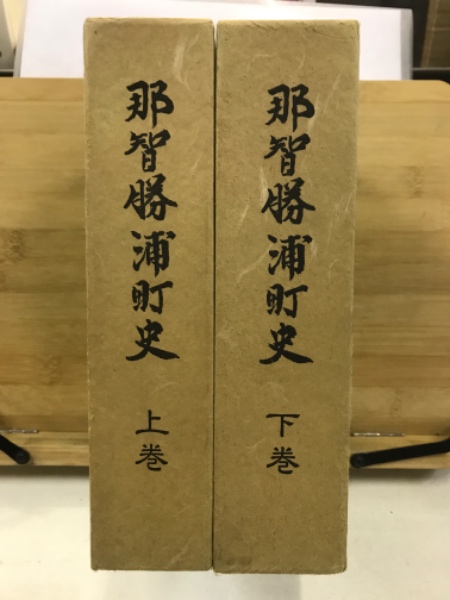 那智勝浦町史
上巻
那智勝浦町史
下巻